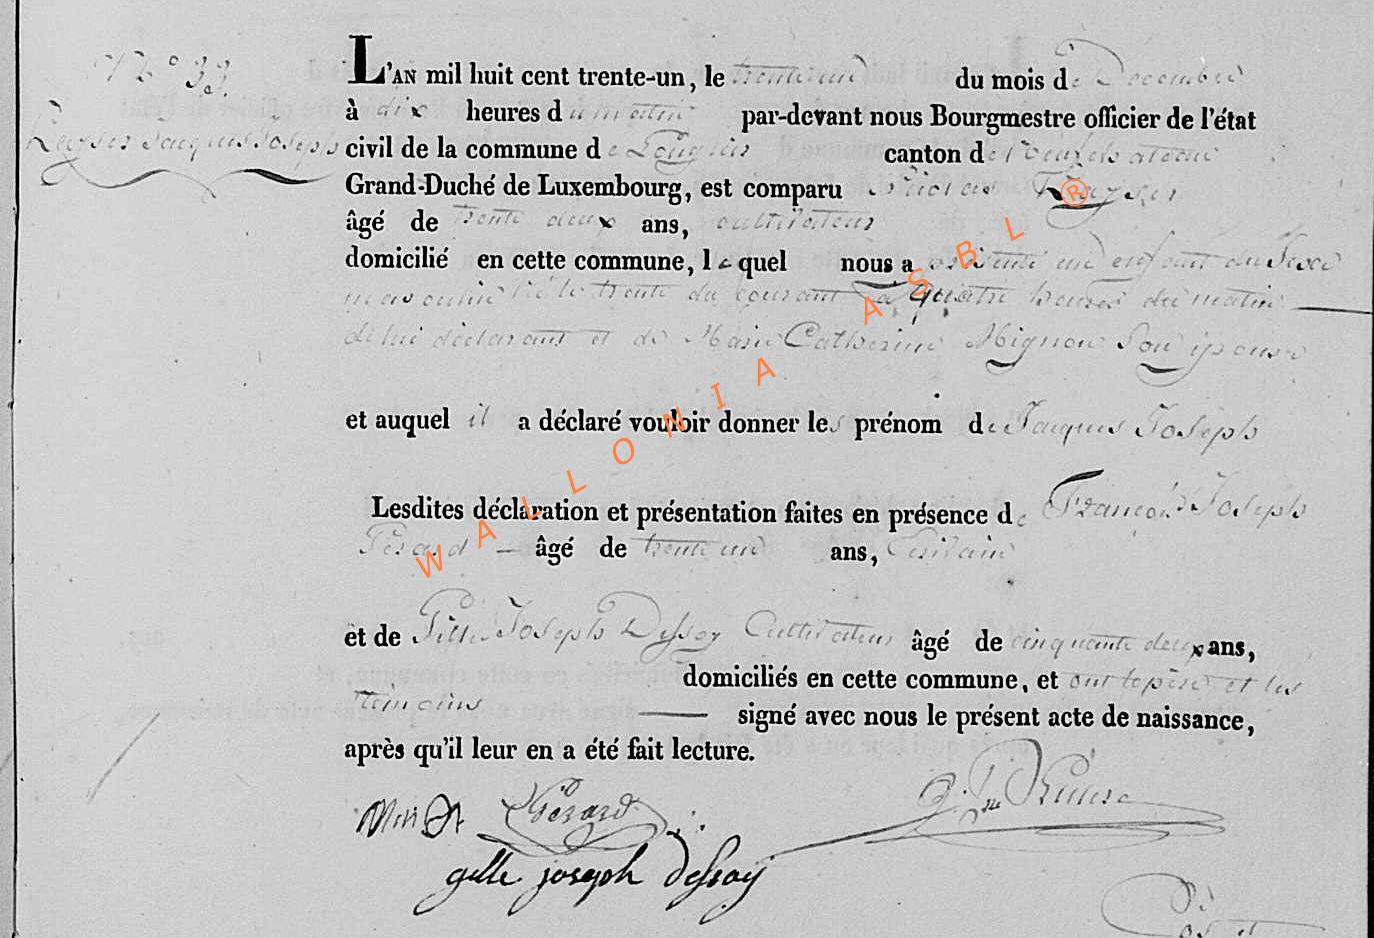 N° 33.
L'AN mil huit cent trente-un, le trente un du mois de Decembre
à dix heures du matin par-devant nous Bourgmestre officier de l'état
Jacques Joseph
civil de la commune de Louglier canton de Neufchateau
Grand-Duché de Luxembourg, est comparu Nicolas
âgé de trente deux ans, cultivateur
domicilié en cette commune, lequel nous a présenté un enfant du Sexe
masculin né le trente du courant à quatre heures du matin
de lui déclarant et de Marie Catherine Mignon Son épouse
et auquel il a déclaré vouloir donner les prénom de Jacques Joseph
Lesdites déclaration et présentation faites en présence de François Joseph
Gérard âgé de trente un ans,
et de Gille Joseph Dessoy Cultivateur âgé de cinquante deux ans,
domiciliés en cette commune, et ont le père et les
témoins signé avec nous le présent acte de naissance,
après qu'il leur en a été fait lecture.
Gérard
gille joseph dessoy
WALLONIA ASBL ®